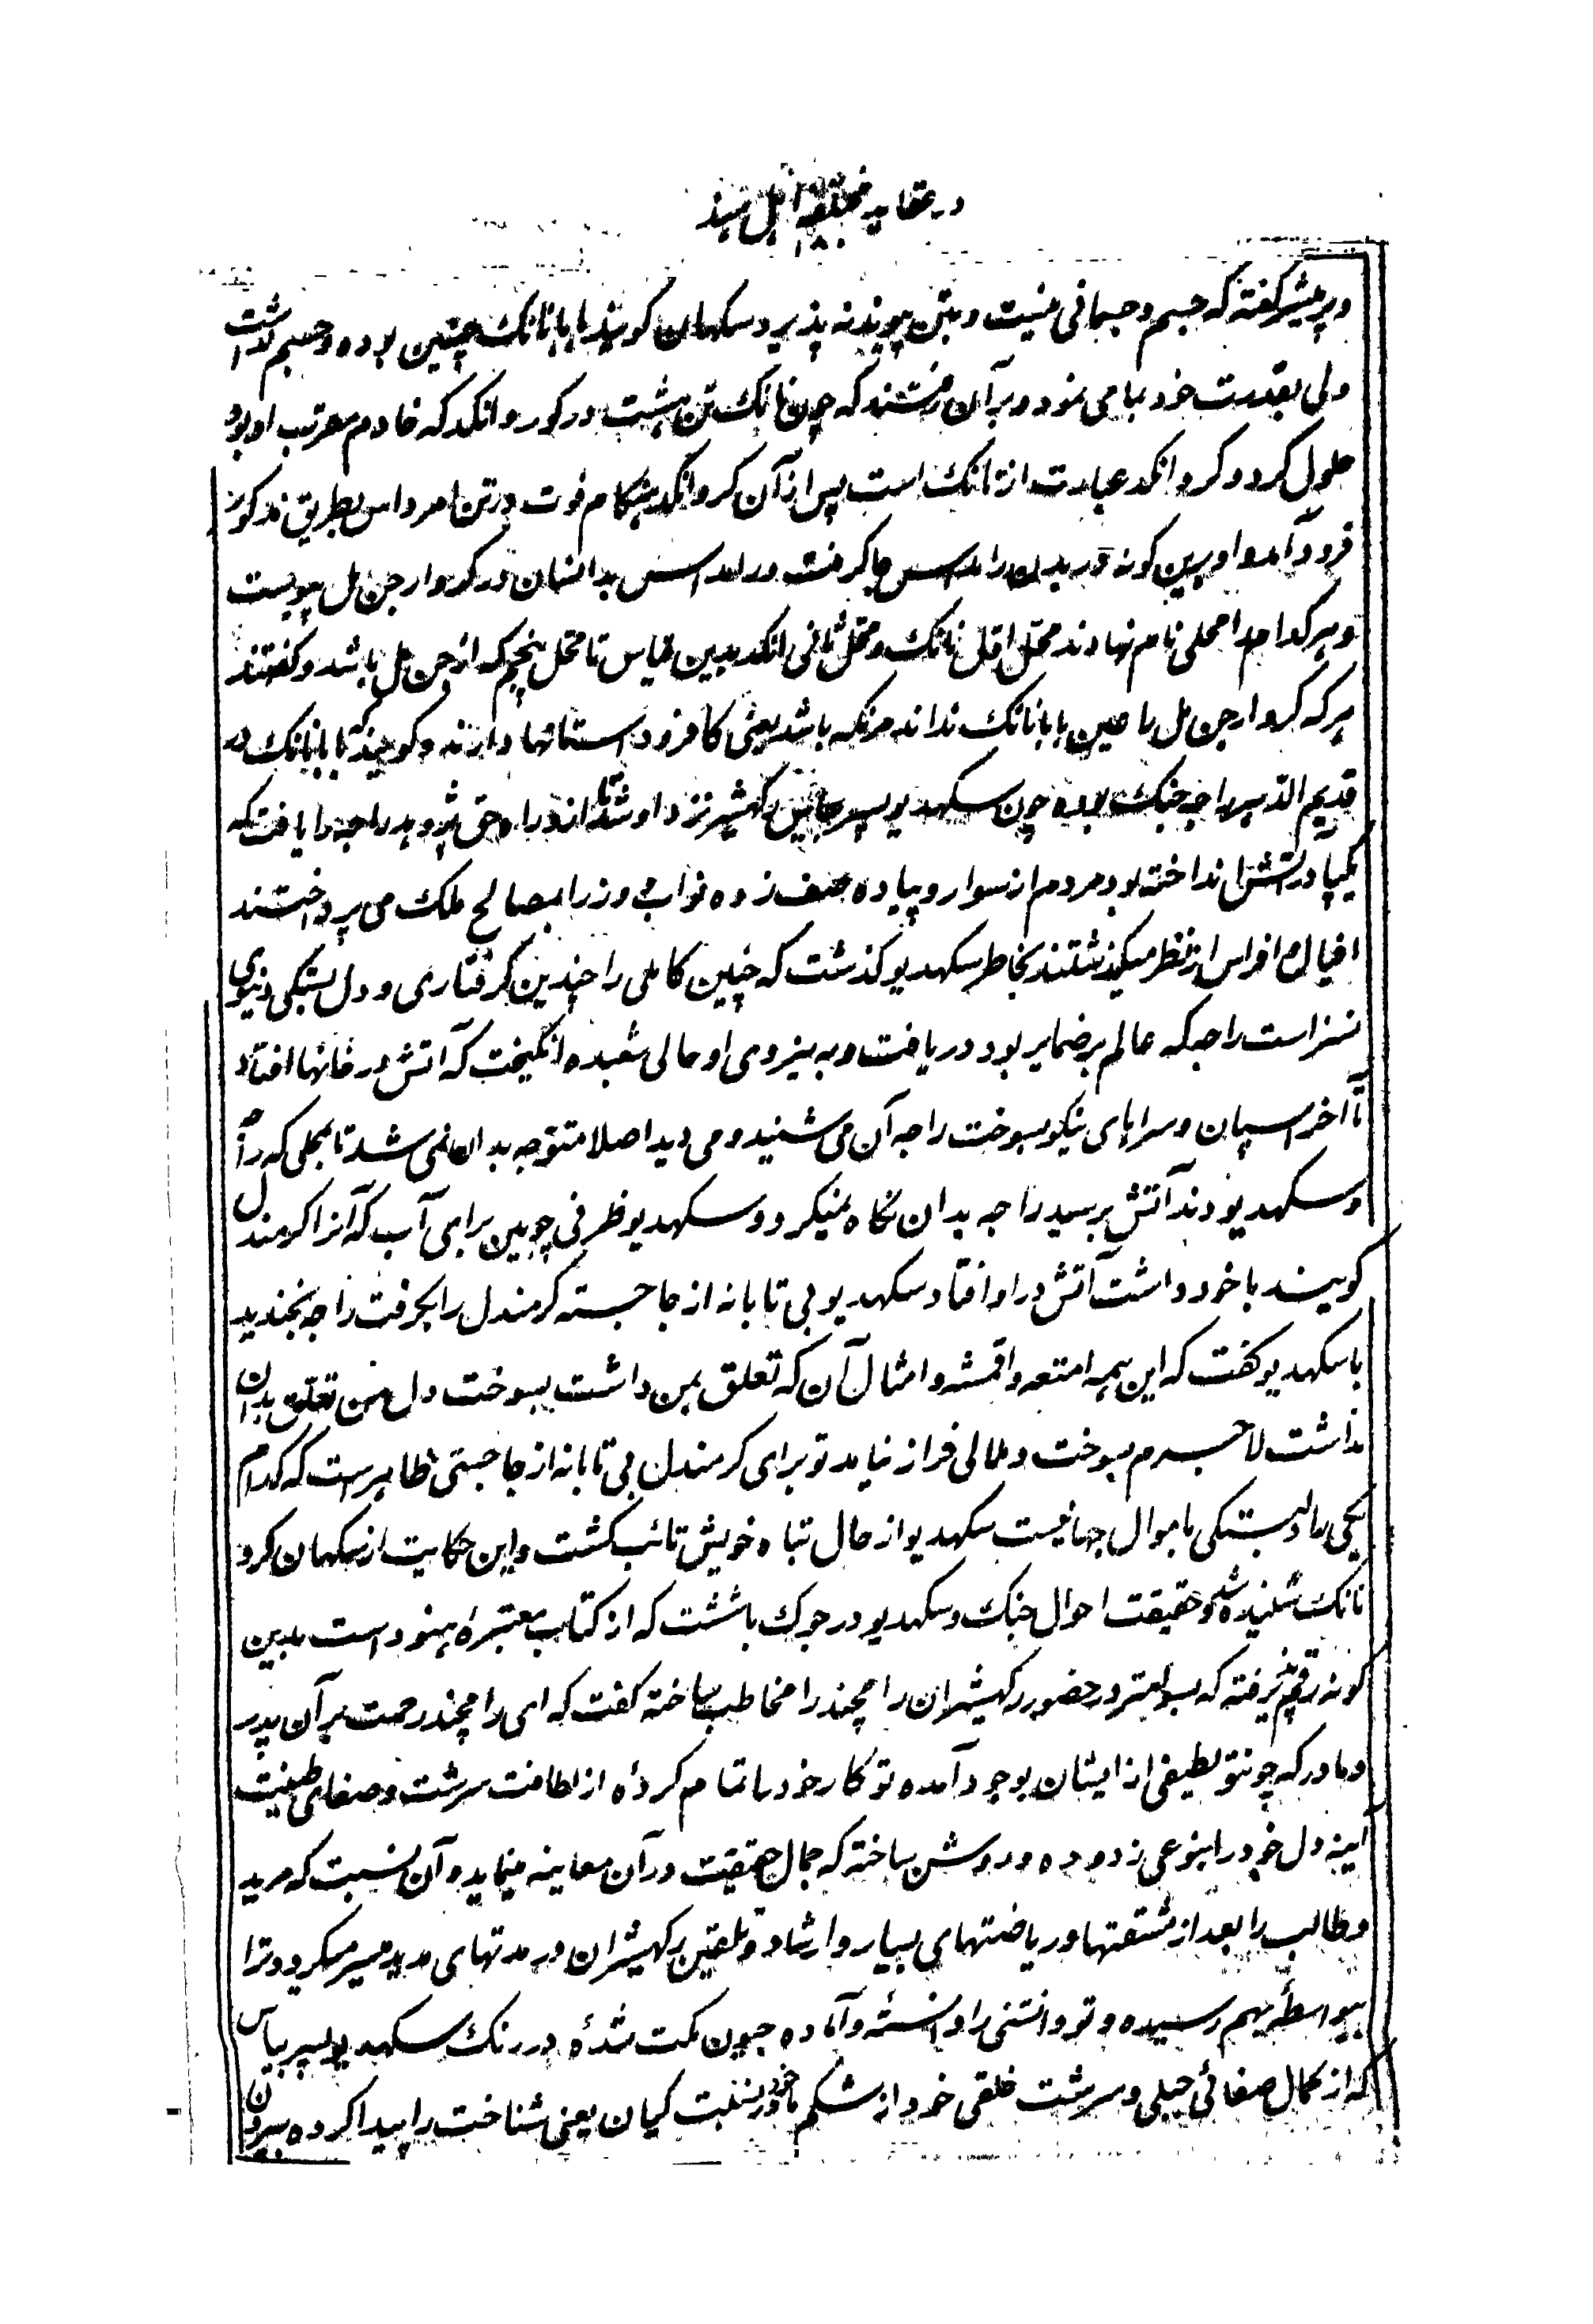 در عقاید مختلفه اهل هند
۱۸۰
و پرمیشر گفته که جسم و جسمانی نیست و بتن پیوند نه پذیرد سکهان گویند بابا نانک چنین بوده و جسم نداشت
ولی بقدرت خود بما می نمود و بر آن رفتند که چون نانک تن بهشت در کور وانکد که خادم مقرب او بود
حلول کرد و کروانکد عبارت از نانک است پس از آن کروانکد هنکام فوت در تن امرداس بطریق مذکور
فرود آمد و او برین کونه در بدن رامداس جا کرفت و رامداس بدانسان در کروارجن مل پیوست
و هر کدام را محلی نام نهادند محل اول نانک و محل ثانی انکد بدین قیاس تا محل پنجم که ارجن مل باشد و کفتند
هر که کروارجن مل را عین بابا نانک نداند مرنکه باشد یعنی کافر و داستانها دارند و کویند که بابا نانک در
قدیم الدهر راجه جنک بوده چون سکهدیو پسر بیاس رکهیشر نزد او شد تا ازو راه حق پژوهد راجه را یافت که
یکپا در آتش انداخته بود مردم از سوار و پیاده صف زده نواب و وزرا بمصالح ملک می پرداختند
افیال و افراس از نظر میکذشتند بخاطر سکهدیو کذشت که چنین کاملی را چندین کرفتاری و دل بستکی دنیوی
نسزاست راجه که عالم بر ضمایر بود دریافت و به نیروی او حالی شعبده انکیخت که آتش در خانها افتاد
تا آخر اسپان و سراهای نیکو بسوخت راجه آن می شنید و می دید اصلا متوجه بدان نمی شد تا بمحلی که راجه
و سکهدیو بودند آتش برسید راجه بدان نکاه نمیکرد و سکهدیو ظرفی چوبین برای آب که آنرا کرمندل
کویند با خود داشت آتش در او افتاد سکهدیو بی تابانه از جا جسته کرمندل را بکرفت راجه بخندید
با سکهدیو کفت که این همه امتعه و اقمشه و امثال آن که تعلق بمن داشت بسوخت دل من تعلق بدان
نداشت لاجرم بسوخت و ملالی فراز نیامد تو برای کرمندل بی تابانه از جا جستی ظاهرست که کدام
یکی را دلبستکی باموال جهانیست سکهدیو از حال تباه خویش تائب کشت و این حکایت از سکهان کرو
نانک شنیده شد و حقیقت احوال جنک و سکهدیو در جوک باششت که از کتاب معتبره هنود است بدین
کونه رقم پذیرفته که بسوامتر در حضور رکهیشران رامچند را مخاطب ساخته کفت که ای رامچند رحمت بر آن پدر
و مادر که چونتو لطیفی از ایشان بوجود آمده تو کار خود را تمام کردهٔ از لطافت سرشت و صفای طینت
آینه دل خود را بنوعی زدوده و روشن ساخته که جمال حقیقت در آن معاینه مینماید و آن نسبت که مرید
و طالب را بعد از مشقتها و ریاضتهای بسیار و ارشاد و تلقین رکهیشران در مدتهای مدید میسر میکردد ترا
بیواسطه بهم رسیده و تو دانستنی را دانسته و آماده جیون مکت شدهٔ در رنک سکهدیو پسر بیاس
که از کمال صفائی جبلی و سرشت خلقی خود از شکم مادر نسبت کیان یعنی شناخت را پیدا کرده بیرون